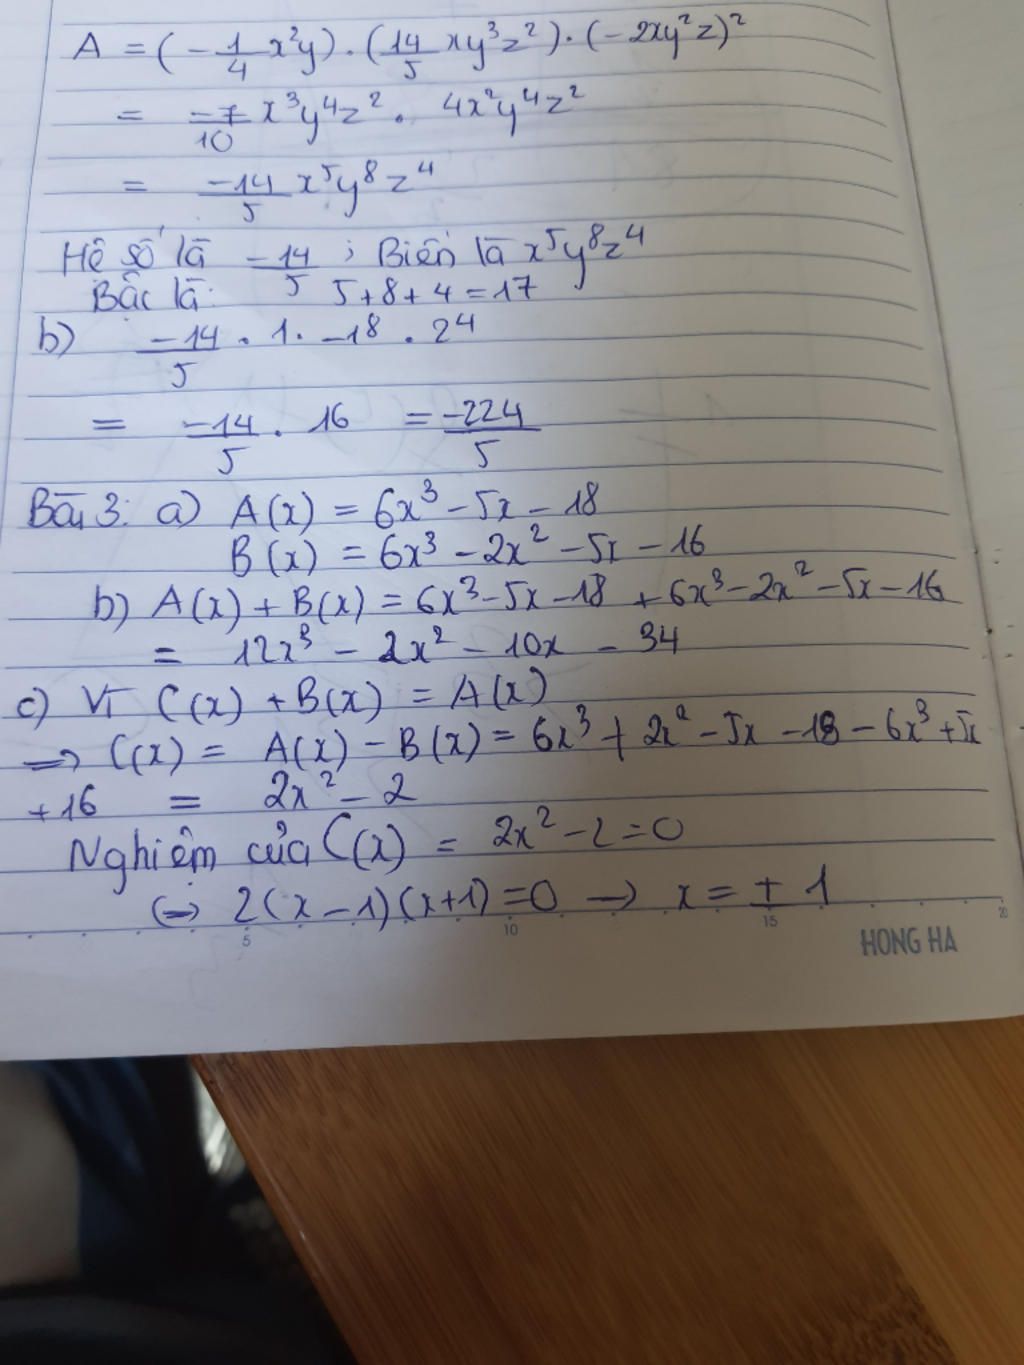 A = (-1/4 x²y) . (14/5 xy³z²) . (-2xy²z)²
= -7/10 x³y⁴z² . 4x²y⁴z²
= -14/5 x⁵y⁸z⁴
Hệ số là -14/5 ; Biến là x⁵y⁸z⁴
Bậc là: 5+8+4=17
b) -14/5 . 1 . -1⁸ . 2⁴
= -14/5 . 16 = -224/5
Bài 3: a) A(x) = 6x³ - 5x - 18
B(x) = 6x³ - 2x² - 5x - 16
b) A(x) + B(x) = 6x³ - 5x - 18 + 6x³ - 2x² - 5x - 16
= 12x³ - 2x² - 10x - 34
c) Vì C(x) + B(x) = A(x)
=> C(x) = A(x) - B(x) = 6x³ + 2x² - 5x - 18 - 6x³ + 5x
+16 = 2x² - 2
Nghiệm của C(x) = 2x² - 2 = 0
(=> 2(x-1)(x+1) = 0 → x = ± 1
5 10 15 20
HONG HA